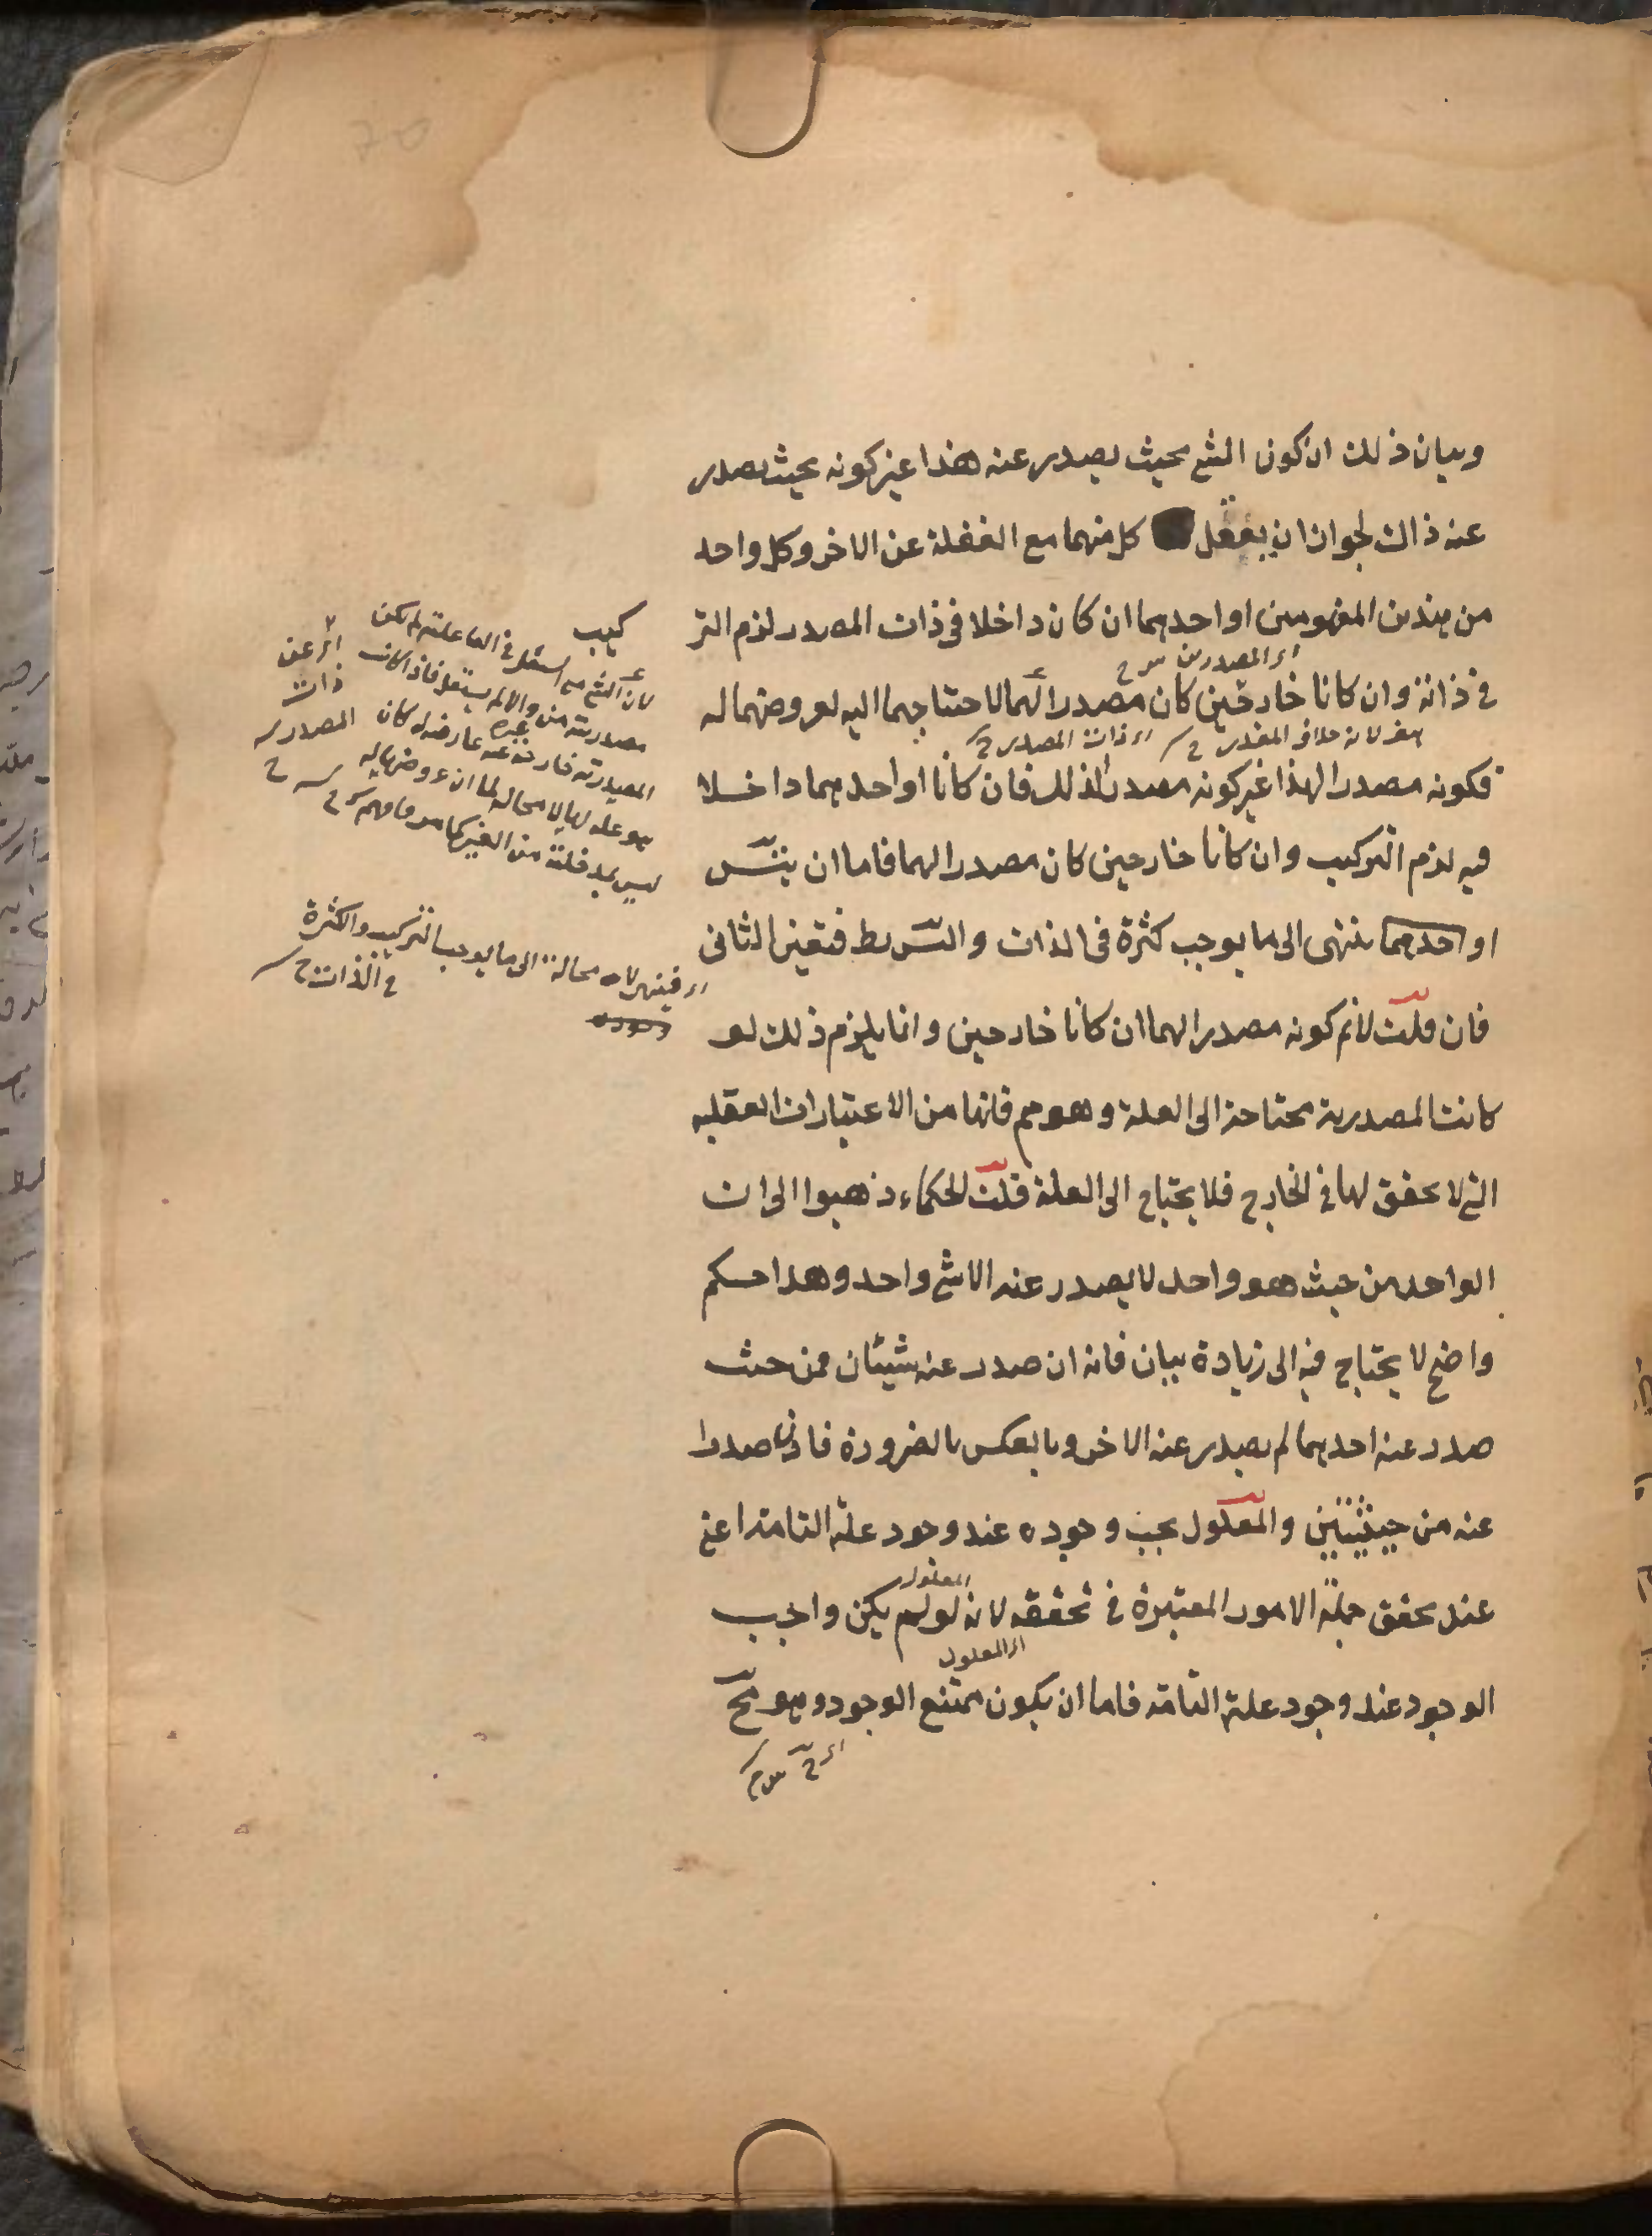 وبيان ذلك ان كون الشئ بحيث يصدر عنه هذا غير كونه بحيث يصدر
عنه ذاك لجواز ان يعقل كل منهما مع الغفلة عن الاخر وكل واحد
من هذين المفهومين او احدهما ان كان داخلا فى ذات المصدر لزم التر
كيب
اى المصدرين
فى ذاته وان كانا خارجين كان مصدرا لهما لاحتاجهما اليه لعروضهما له
لانه خلاف المقدر اى ذات المصدر
فكونه مصدرا لهذا غير كونه مصدرا لذلك فان كانا او احدهما داخلا
فيه لزم التركيب وان كانا خارجين كان مصدرا لهما فاما ان يتس
او احدهما ينتهى الى ما يوجب كثرة فى الذات والتس بط فتعين الثانى
فان قلت لانم كونه مصدرا لهما ان كانا خارجين وانما يلزم ذلك لو
كانت المصدرية محتاجة الى العلة وهو مم فانها من الاعتبارات العقلية
التى لا تحقق لها فى الخارج فلا يحتاج الى العلة قلت الحكماء ذهبوا الى ان
الواحد من حيث هو واحد لا يصدر عنه الا شئ واحد وهذا حكم
واضح لا يحتاج فيه الى زيادة بيان فانه ان صدر عنه شيئان فمن حيث
صدر عنه احدهما لم يصدر عنه الاخر وبالعكس بالضرورة فاذن صدرا
عنه من حيثيتين والمعلول يجب وجوده عند وجود علته التامة اعنى
المعلول
عند تحقق جملة الامور المعتبرة فى تحققه لانه لو لم يكن واجب
اى المعلول
الوجود عند وجود علته التامة فاما ان يكون ممتنع الوجود وهو مح
لان الشئ استقل فى الفاعلية لم يكن
مصدريته من غيره والا لم يستقل فاذا كانت
المصدرية خارجة عنه عارضة له كان المصدر
هو علة لها لا محالة لما ان عروضها له
ليس بمدخلة من الغير كما مر فافهم
اى عن
ذات
اى فينتهى لا محالة الى ما يوجب التركيب والكثرة
فى الذات